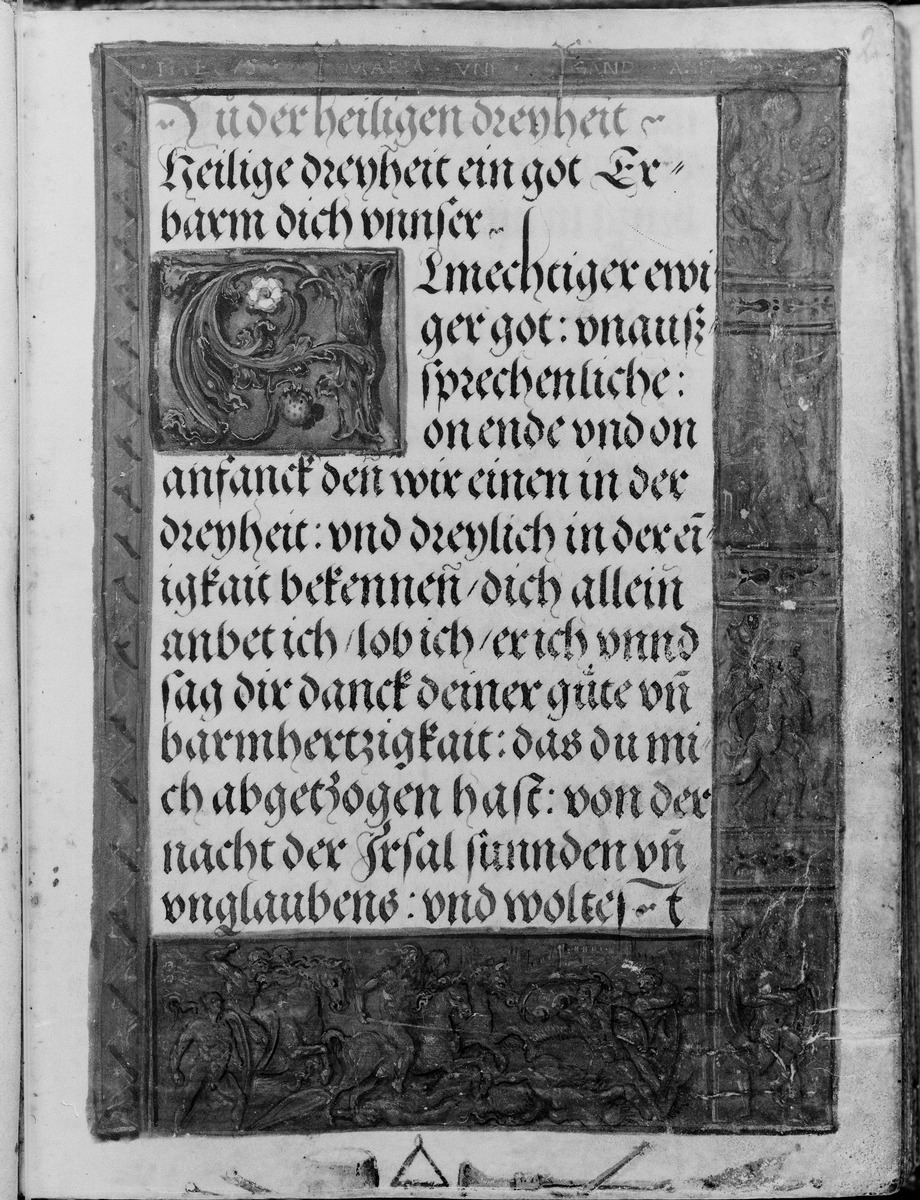 Zů der heiligen dreyheit
Heilige dreyheit ein got Er-
barm dich vnnser
Almechtiger ewi
ger got: vnauß-
sprechenliche:
on ende vnd on
anfanck deñ wir einen in der
dreyheit: vnd dreylich in der eī-
igkait bekenneñ / dich alleiñ
anbet ich / lob ich / er ich vnnd
sag dir danck deiner gůte vñ
barmhertzigkait: das du mi-
ch abgetzogen hast: von der
nacht der Jrsal sunnden vñ
vnglaubens: vnd woltest